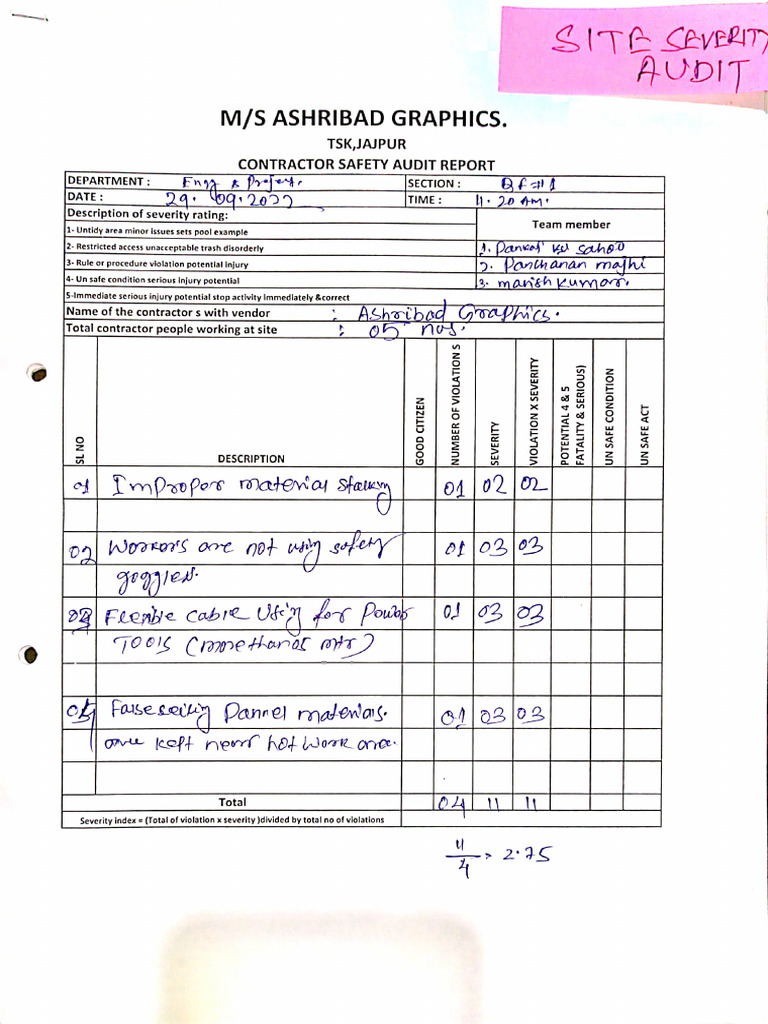 SITE SEVERITY
AUDIT
M/S ASHRIBAD GRAPHICS.
TSK,JAJPUR
CONTRACTOR SAFETY AUDIT REPORT
DEPARTMENT : Engg & Projects. SECTION : BF#1
DATE : 29.09.2022 TIME : 11.20 AM.
Description of severity rating: Team member
1- Untidy area minor issues sets pool example
2- Restricted access unacceptable trash disorderly 1. Pankaj ku sahoo
3- Rule or procedure violation potential injury 2. Panchanan majhi
4- Un safe condition serious injury potential 3. manish kumar.
5-Immediate serious injury potential stop activity immediately &correct
Name of the contractor s with vendor : Ashribad Graphics.
Total contractor people working at site : 05 nos.
SL NO DESCRIPTION GOOD CITIZEN NUMBER OF VIOLATION S SEVERITY VIOLATION X SEVERITY POTENTIAL 4 & 5 FATALITY & SERIOUS) UN SAFE CONDITION UN SAFE ACT
01 Improper material stacking 01 02 02
02 Workers are not using safety 01 03 03
goggles.
03 Flexible cable using for Power 01 03 03
TOOLS (more than 05 mtr)
04 False seiling Pannel materials. 01 03 03
are kept near hot work area.
Total 04 11 11
Severity index = (Total of violation x severity )divided by total no of violations
11/4 = 2.75